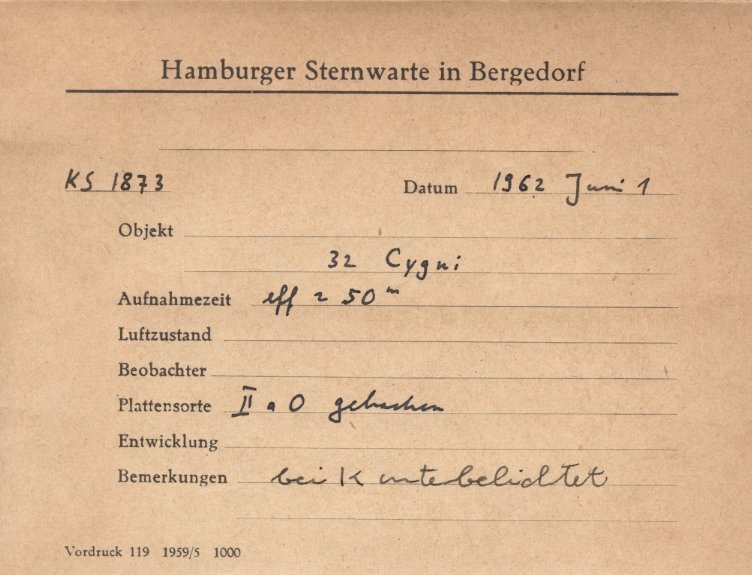 Hamburger Sternwarte in Bergedorf
KS 1873 Datum 1962 Juni 1
Objekt
32 Cygni
Aufnahmezeit eff ≈ 50ᵐ
Luftzustand
Beobachter
Plattensorte II a O gebacken
Entwicklung
Bemerkungen bei K unterbelichtet
Vordruck 119 1959/5 1000